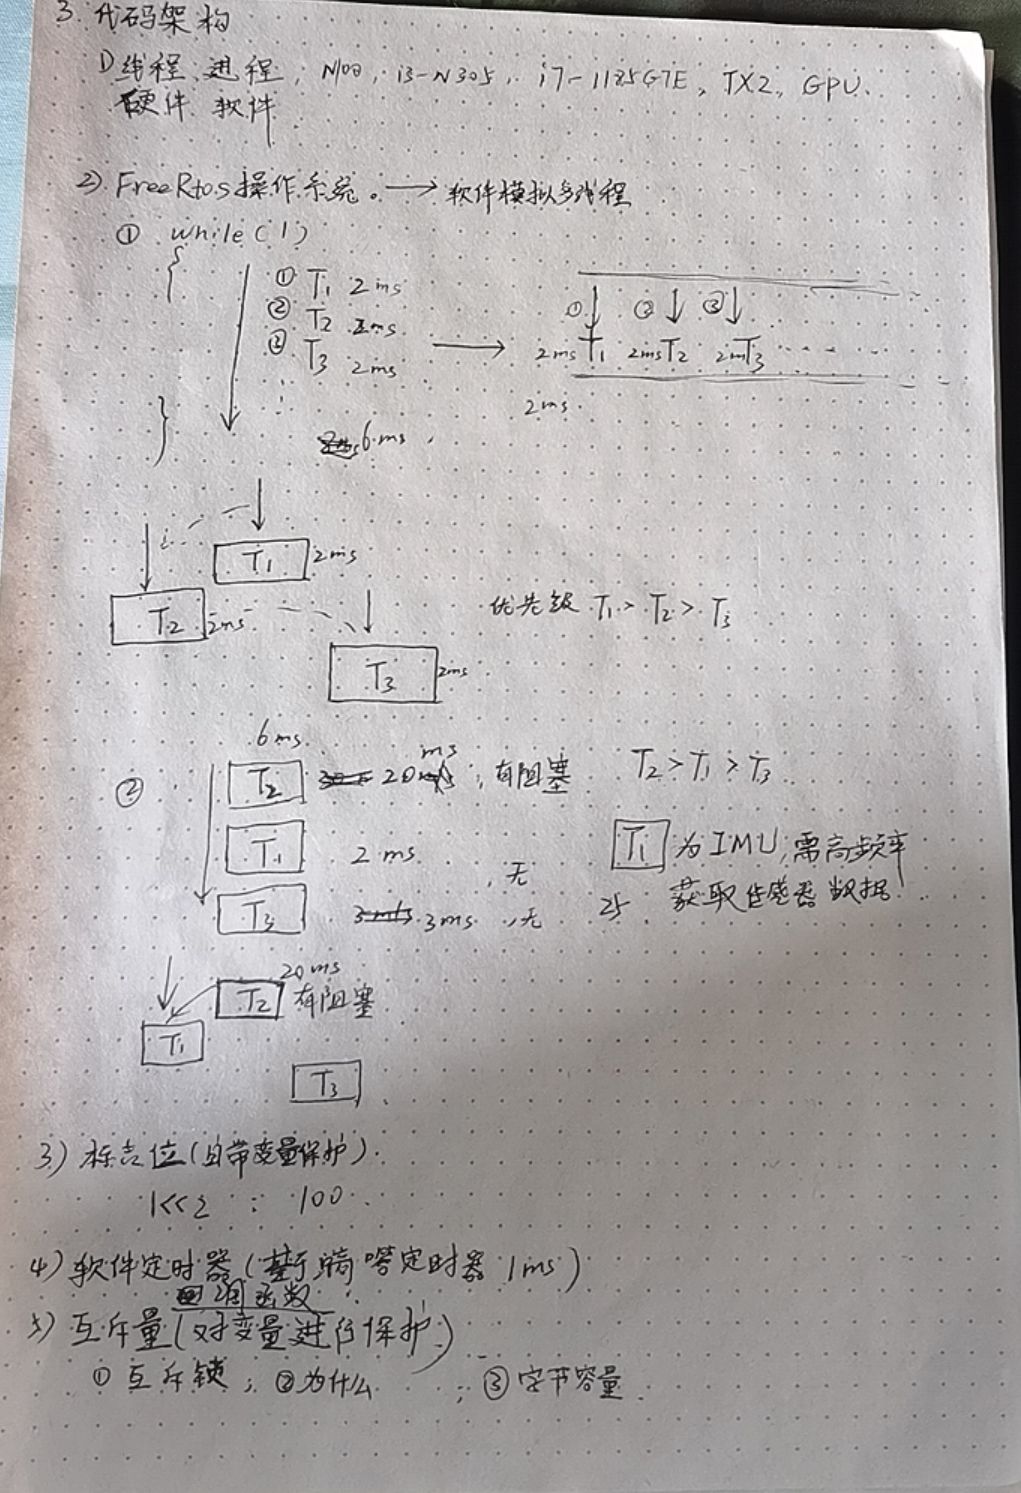 3. 代码架构
1) 线程 进程, N100, i3-N305, i7-1185G7E, TX2, GPU.
硬件 软件
2) FreeRtos操作系统。→ 软件模拟多线程
① while(1)
{
① T1 2ms
② T2 2ms
③ T3 2ms
}
6ms
① ② ③
2ms T1 2ms T2 2m T3
2ms
T1 2ms
T2 2ms
T3 2ms
优先级 T1 > T2 > T3
6ms
② T2 20ms, 有阻塞 T2 > T1 > T3
T1 2ms, 无
T3 3ms, 无
T1 为IMU, 需高频率
获取传感器数据
T2 20ms 有阻塞
T1
T3
3) 标志位(自带变量保护)
1<<2 : 100
4) 软件定时器(基于滴嗒定时器 1ms)
回调函数
5) 互斥量(对变量进行保护)
① 互斥锁; ②为什么; ③字节容量